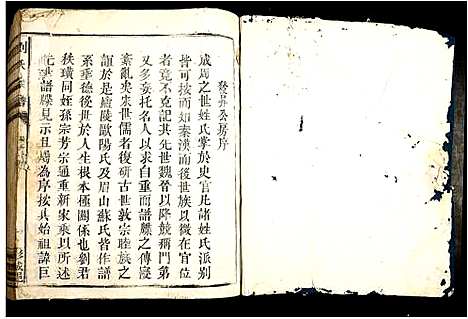 癸昇公房序
成周之世姓氏掌於史官凡諸姓氏派別
皆可按而知秦漢而後世族以微在官位
者竟不可其先世魏晉以降競稱門第
又多妄托名人以自重而譜牒之傳寖
紊亂矣宋世儒者復研古世敦宗睦族之
誼於是廬陵歐陽氏及眉山蘇氏皆作譜
系垂德後世於人生根本極關係也劉君
秩璜同姪孫宗芳宗通重新家乘以所述
先世譜牒見示且屬為序按其始祖諱巨
劉氏宗譜
彭城邑